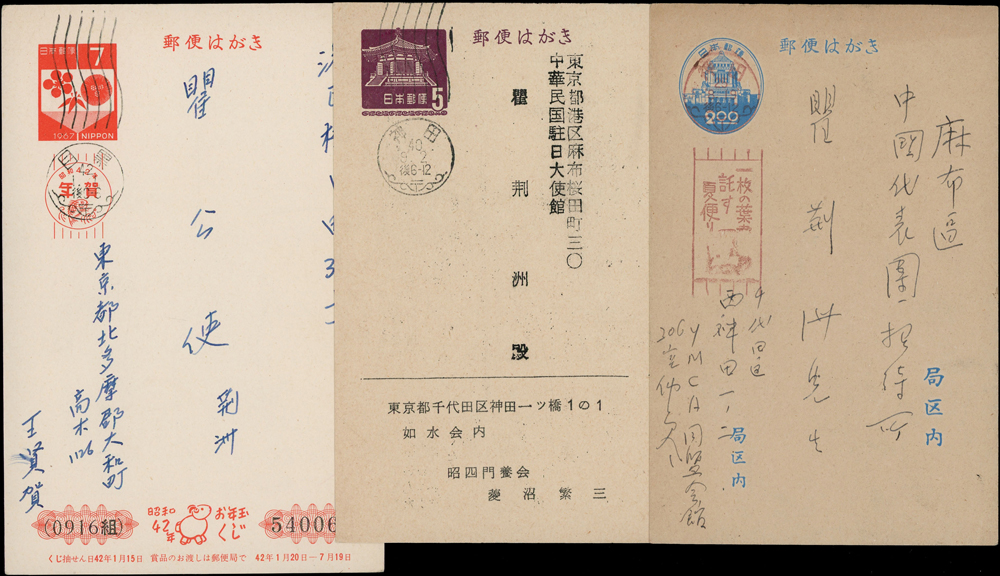 日本郵便
7
1967 NIPPON
郵便はがき
目黒
42
年賀
瞿公使
荊洲
東京都北多摩郡大和町
高木1126
王賢賀
(0916組)
昭和
42年
お年玉
くじ
54006
くじ抽せん日42年1月15日 賞品のお渡しは郵便局で 42年1月20日−7月19日
郵便はがき
日本郵便 5
田
40
後6-12
東京都港区麻布桜田町三〇
中華民国駐日大使館
瞿荆洲殿
東京都千代田区神田一ツ橋1の1
如水会内
昭四門養会
菱沼繁三
郵便はがき
日本郵便
200
一枚の葉書
託す
夏便り
麻布區
中國代表團招待所
瞿荊洲先生
千代田区
西神田一ノ二
YMCA同盟会館
206室
局区内
局区内